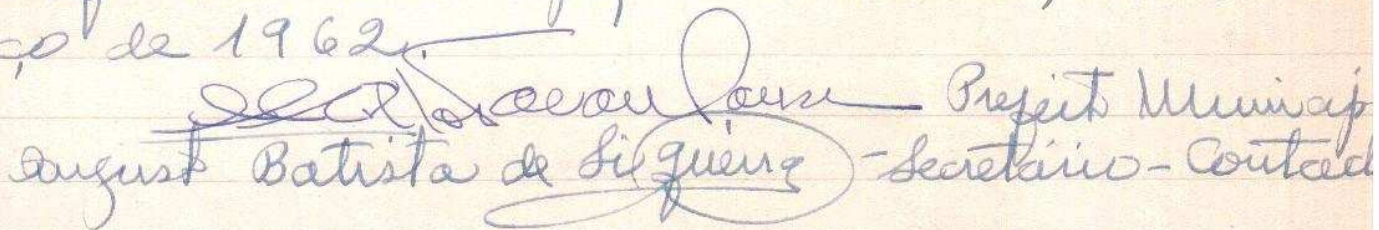 ço de 1962.
Prefeit Municip
August Batista de Siqueira - Secretário - Contad